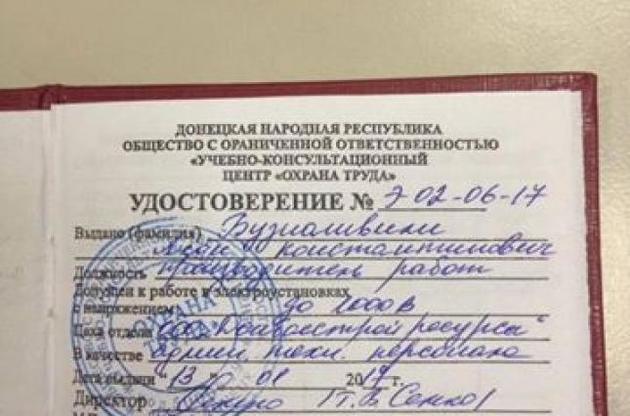 ДОНЕЦКАЯ НАРОДНАЯ РЕСПУБЛИКА
ОБЩЕСТВО С ОГРАНИЧЕННОЙ ОТВЕТСТВЕННОСТЬЮ
«УЧЕБНО-КОНСУЛЬТАЦИОННЫЙ
ЦЕНТР «ОХРАНА ТРУДА»
УДОСТОВЕРЕНИЕ № Э 02-06-17
Выдано (фамилия)
Константинович
Должность производитель работ
Допущен к работе в электроустановках
с напряжением до 1000 В
Цеха отдела ООО
В качестве админ. техн. персонала
Дата выдачи "13" 01 2017 г.
Директор